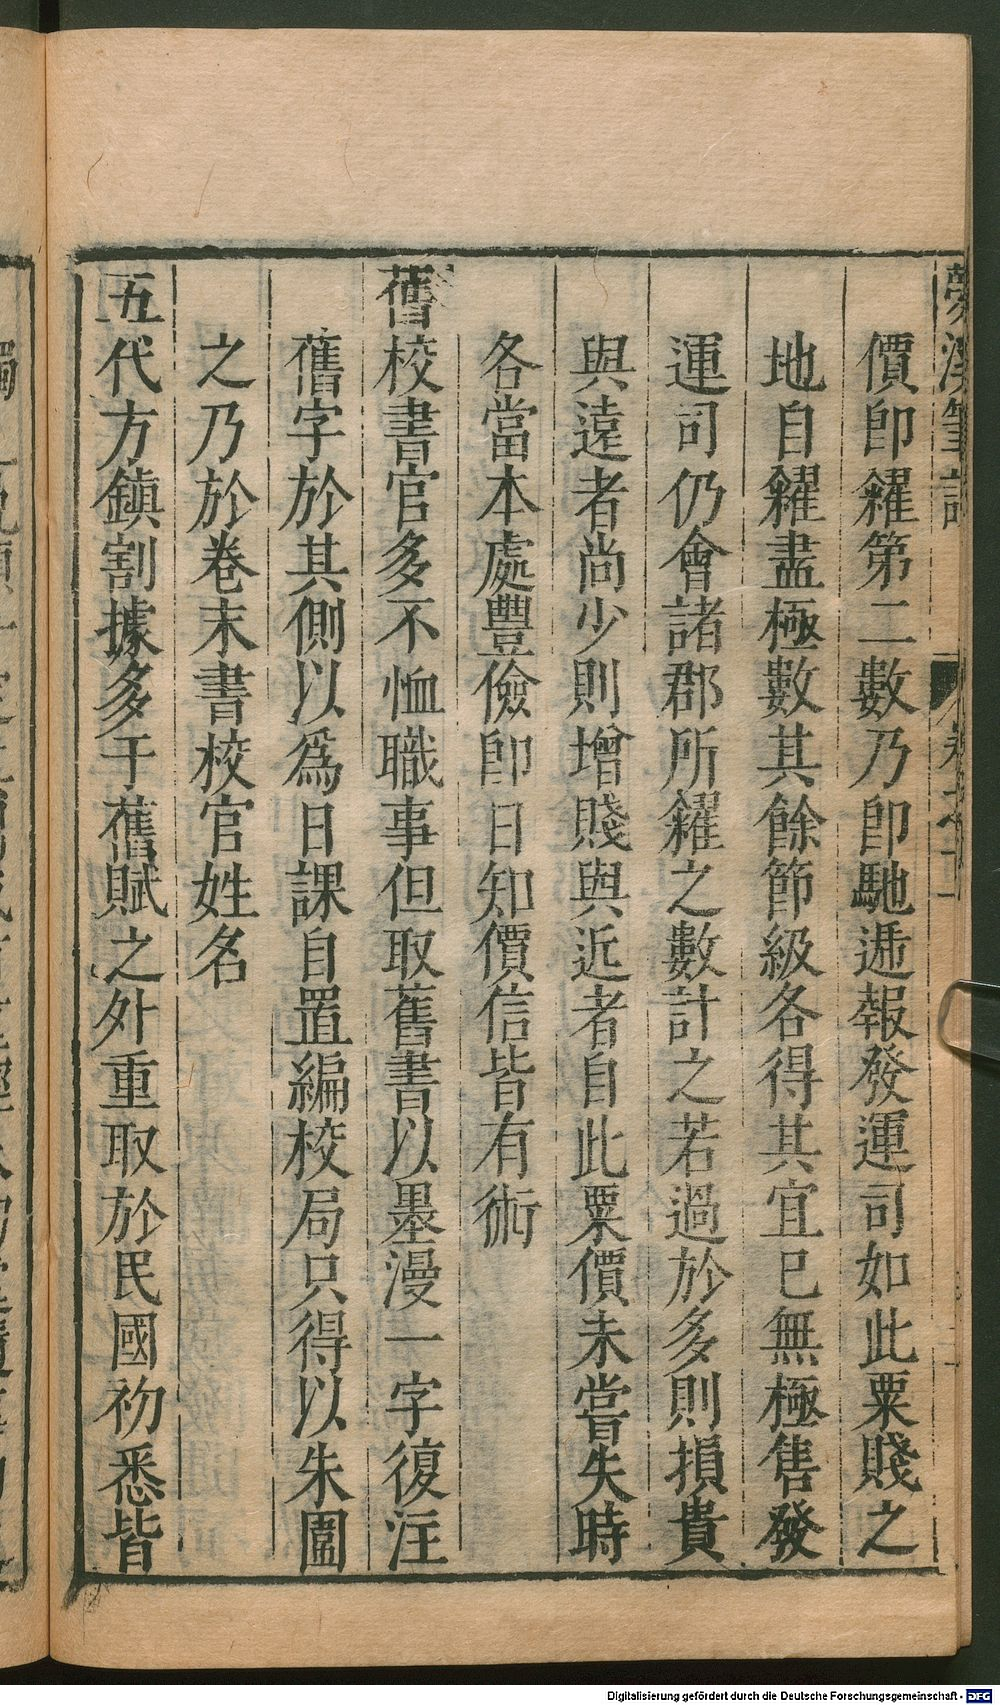 夢溪筆談
價卽糴第二數乃卽馳遞報發運司如此粟賤之
地自糴盡極數其餘節級各得其宜已無極售發
運司仍會諸郡所糴之數計之若過於多則損貴
與遠者尚少則增賤與近者自此粟價未嘗失時
各當本處豐儉卽日知價信皆有術
舊校書官多不恤職事但取舊書以墨漫一字復注
舊字於其側以爲日課自置編校局只得以朱圍
之乃於卷末書校官姓名
五代方鎮割據多于舊賦之外重取於民國初悉皆
Digitalisierung gefördert durch die Deutsche Forschungsgemeinschaft - DFG